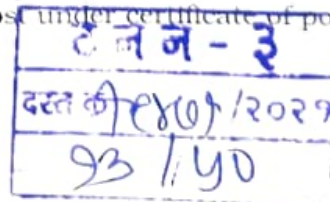 st under certificate of po
ट न ज - ३
दस्त क्र १४७१/२०२१
१३ / ५०